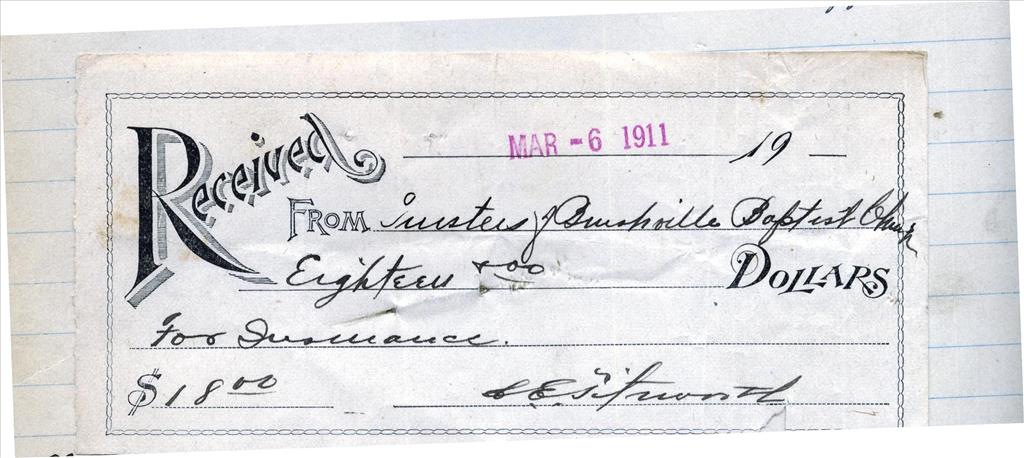 MAR - 6 1911 19 —
Received
FROM Trustees of Brushville Baptist Church
Eighteen & 00 DOLLARS
For Insurance.
$ 18 00